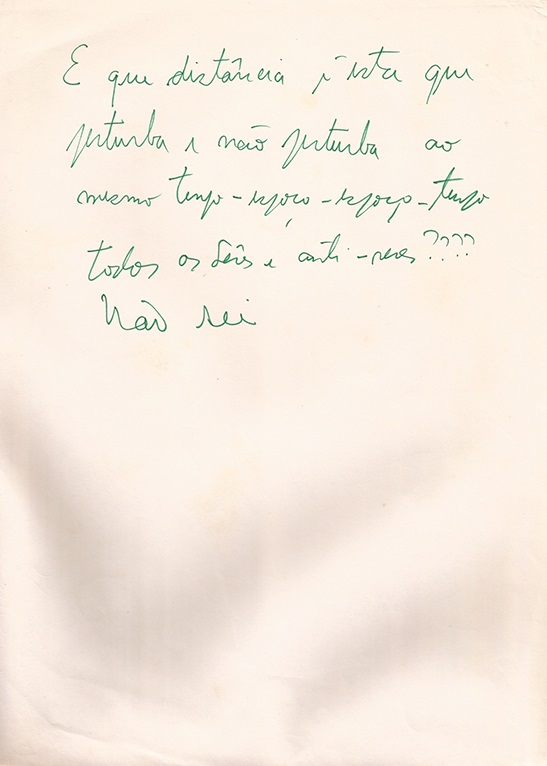 E que distância é esta que
perturba e não perturba ao
mesmo tempo-espaço-espaço-tempo
todos os sêres e anti-seres????
Não sei